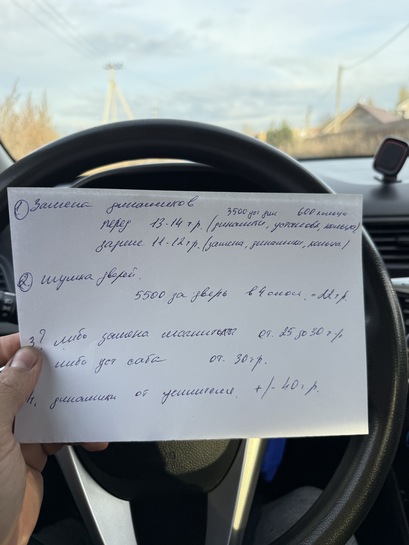 ① Замена динамиков
3500 уст дин 600 кольца
перед 13-14 т.р. (динамики, установка, кольца)
задние 11-12 т.р. (замена, динамики, кольца)
② шумка дверей.
5500 за дверь в 4 слоя. - 22 т.р.
3? либо замена магнитолы от. 25 до 30 т р
либо уст саба от. 30 т р.
4. динамики от усилителя. +/- 40 т р.